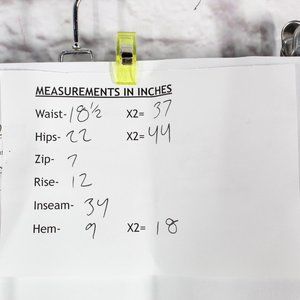 MEASUREMENTS IN INCHES
Waist- 18 1/2 X2= 37
Hips- 22 X2= 44
Zip- 7
Rise- 12
Inseam- 34
Hem- 9 X2= 18